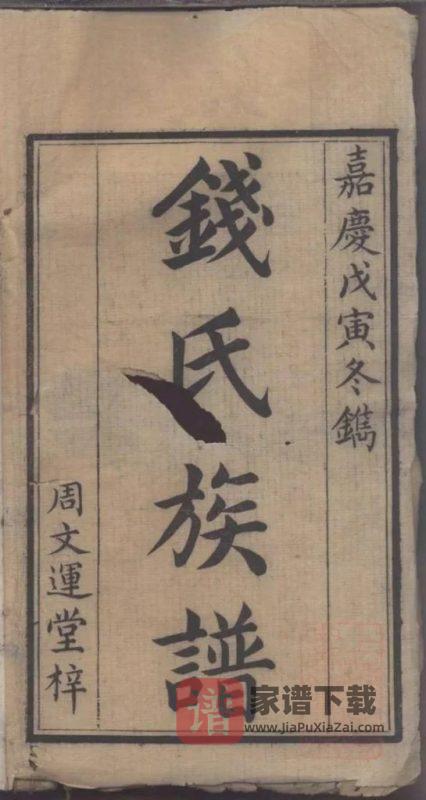 嘉慶戊寅冬鐫
錢氏族譜
周文運堂梓
譜
家谱下载
www.JiaPuXiaZai.com